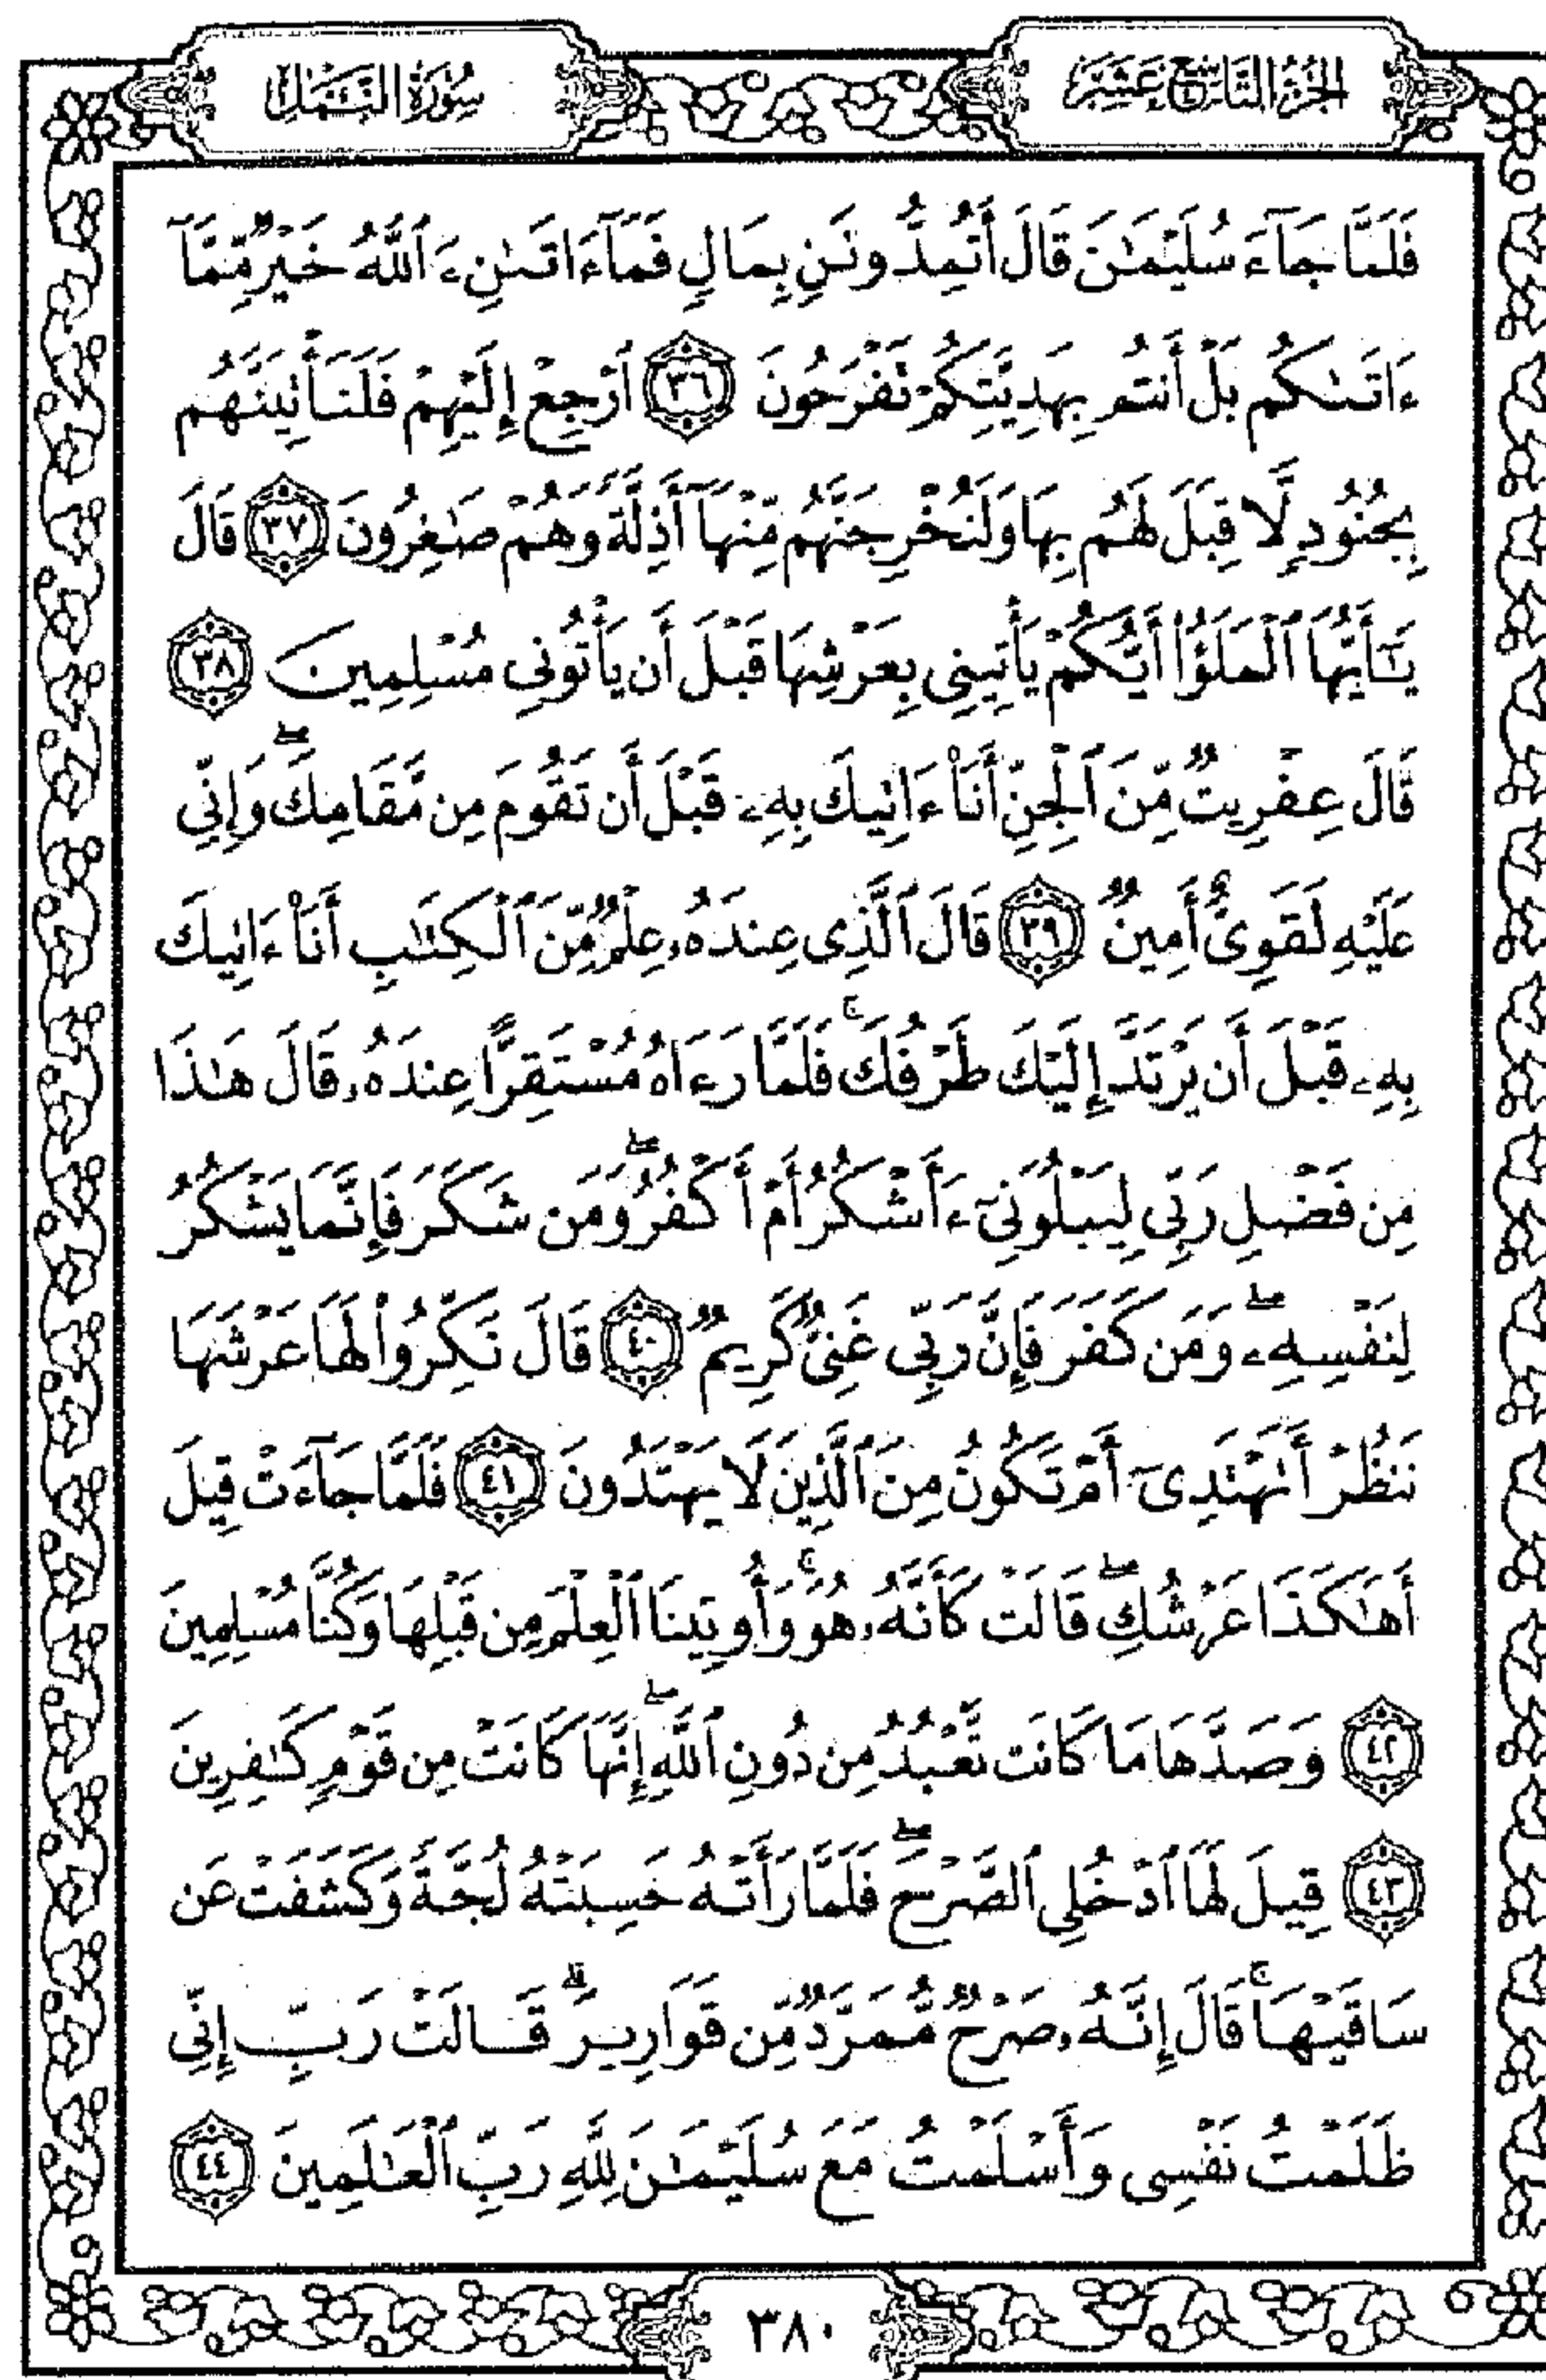 الجزء التاسع عشر
سورة النمل
فَلَمَّا جَآءَ سُلَيْمَٰنَ قَالَ أَتُمِدُّونَنِ بِمَالٍ فَمَآ ءَاتَىٰنِۦَ ٱللَّهُ خَيْرٌ مِّمَّآ
ءَاتَىٰكُم بَلْ أَنتُم بِهَدِيَّتِكُمْ تَفْرَحُونَ ٣٦ ٱرْجِعْ إِلَيْهِمْ فَلَنَأْتِيَنَّهُم
بِجُنُودٍ لَّا قِبَلَ لَهُم بِهَا وَلَنُخْرِجَنَّهُم مِّنْهَآ أَذِلَّةً وَهُمْ صَٰغِرُونَ ٣٧ قَالَ
يَٰٓأَيُّهَا ٱلْمَلَؤُا۟ أَيُّكُمْ يَأْتِينِى بِعَرْشِهَا قَبْلَ أَن يَأْتُونِى مُسْلِمِينَ ٣٨
قَالَ عِفْرِيتٌ مِّنَ ٱلْجِنِّ أَنَا۠ ءَاتِيكَ بِهِۦ قَبْلَ أَن تَقُومَ مِن مَّقَامِكَ ۖ وَإِنِّى
عَلَيْهِ لَقَوِىٌّ أَمِينٌ ٣٩ قَالَ ٱلَّذِى عِندَهُۥ عِلْمٌ مِّنَ ٱلْكِتَٰبِ أَنَا۠ ءَاتِيكَ
بِهِۦ قَبْلَ أَن يَرْتَدَّ إِلَيْكَ طَرْفُكَ ۚ فَلَمَّا رَءَاهُ مُسْتَقِرًّا عِندَهُۥ قَالَ هَٰذَا
مِن فَضْلِ رَبِّى لِيَبْلُوَنِىٓ ءَأَشْكُرُ أَمْ أَكْفُرُ ۖ وَمَن شَكَرَ فَإِنَّمَا يَشْكُرُ
لِنَفْسِهِۦ ۖ وَمَن كَفَرَ فَإِنَّ رَبِّى غَنِىٌّ كَرِيمٌ ٤٠ قَالَ نَكِّرُوا۟ لَهَا عَرْشَهَا
نَنظُرْ أَتَهْتَدِىٓ أَمْ تَكُونُ مِنَ ٱلَّذِينَ لَا يَهْتَدُونَ ٤١ فَلَمَّا جَآءَتْ قِيلَ
أَهَٰكَذَا عَرْشُكِ ۖ قَالَتْ كَأَنَّهُۥ هُوَ ۚ وَأُوتِينَا ٱلْعِلْمَ مِن قَبْلِهَا وَكُنَّا مُسْلِمِينَ
٤٢ وَصَدَّهَا مَا كَانَت تَّعْبُدُ مِن دُونِ ٱللَّهِ ۖ إِنَّهَا كَانَتْ مِن قَوْمٍ كَٰفِرِينَ
٤٣ قِيلَ لَهَا ٱدْخُلِى ٱلصَّرْحَ ۖ فَلَمَّا رَأَتْهُ حَسِبَتْهُ لُجَّةً وَكَشَفَتْ عَن
سَاقَيْهَا ۚ قَالَ إِنَّهُۥ صَرْحٌ مُّمَرَّدٌ مِّن قَوَارِيرَ ۗ قَالَتْ رَبِّ إِنِّى
ظَلَمْتُ نَفْسِى وَأَسْلَمْتُ مَعَ سُلَيْمَٰنَ لِلَّهِ رَبِّ ٱلْعَٰلَمِينَ ٤٤
٣٨٠